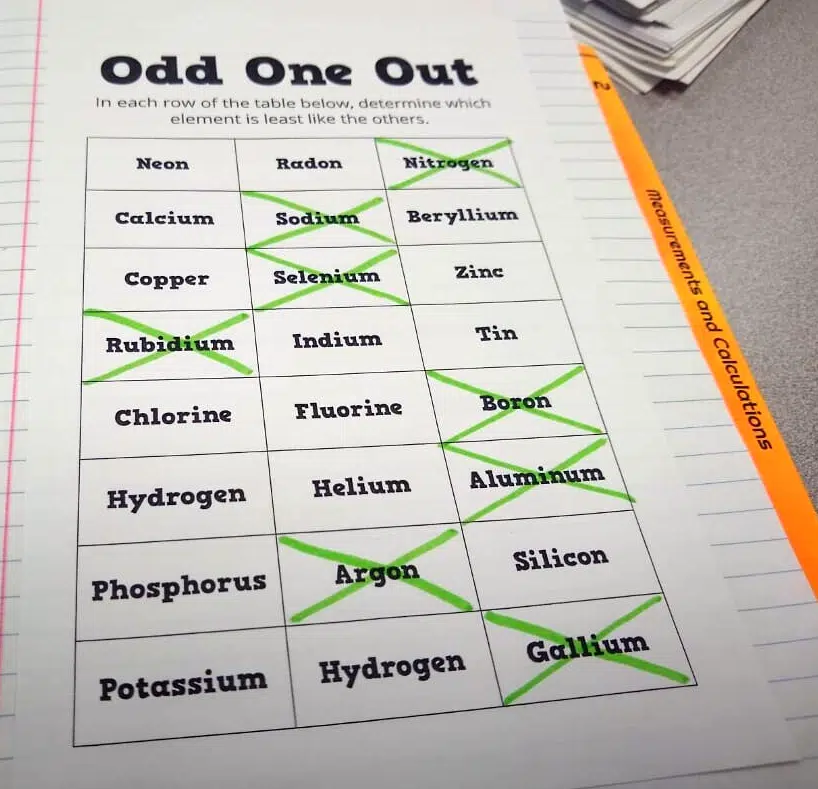 Odd One Out
In each row of the table below, determine which
element is least like the others.
Neon Radon Nitrogen
Calcium Sodium Beryllium
Copper Selenium Zinc
Rubidium Indium Tin
Chlorine Fluorine Boron
Hydrogen Helium Aluminum
Phosphorus Argon Silicon
Potassium Hydrogen Gallium
2
Measurements and Calculations